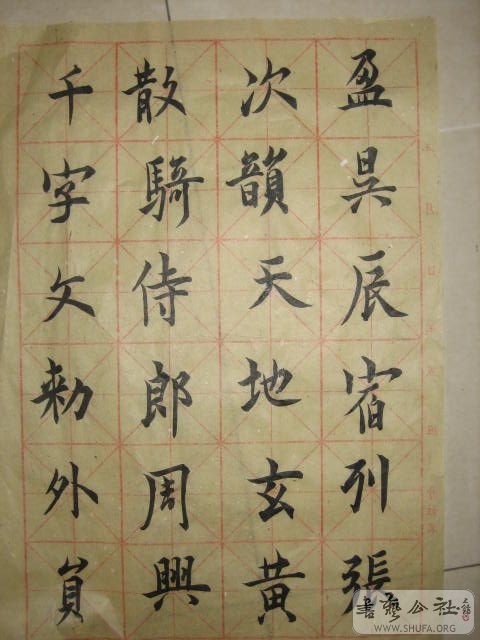 千字文勑外員
散騎侍郎周興
次韻天地玄黄
盈昃辰宿列張
書藝公社
WWW.SHUFA.ORG